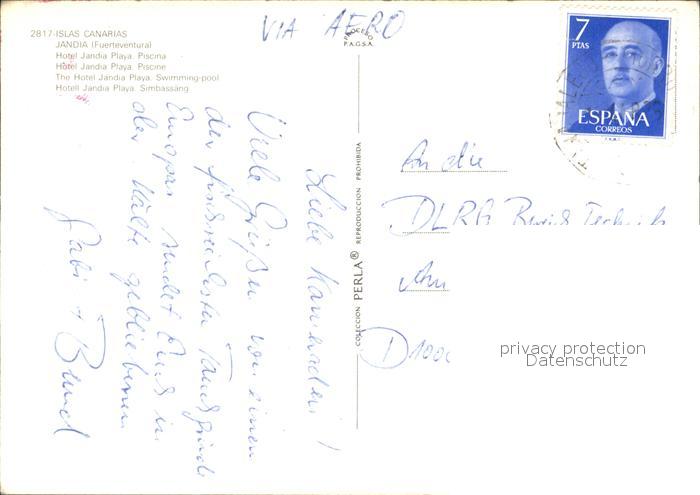 2817-ISLAS CANARIAS
JANDIA (Fuerteventura)
Hotel Jandia Playa. Piscina
Hotel Jandia Playa. Piscine
The Hotel Jandia Playa. Swimming-pool
Hotell Jandia Playa. Simbassäng
VIA AERO
PROCERO
P.A.G.S.A.
7
PTAS
ESPAÑA
CORREOS
Liebe Kameraden!
Viele Grüße von einem
der fischreichsten Tauchgründe
Europas sendet Euch in
der Kälte gebliebenen
Gabi + Bernd
COLECCION PERLA® REPRODUCCION PROHIBIDA
An die
DLRG Technik
Am
D 1000
privacy protection
Datenschutz